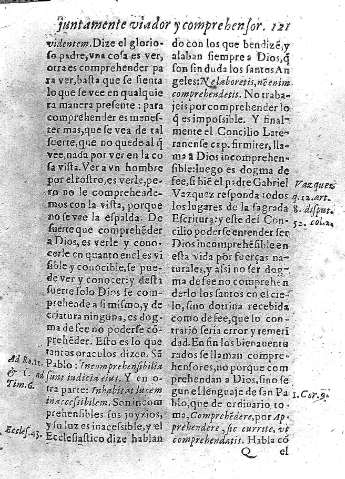 juntamente viador y comprehensor. 121
videntem. Dize el glorio-
so padre, vna cosa es ver,
otra es comprehender pa
ra ver, basta que se sienta
lo que se vee en qualquie
ra manera presente: para
comprehender es menes-
ter mas, que se vea de tal
suerte, que no quede al q̃
vee, nada por ver en la co
sa vista. Ver a vn hombre
por el rostro, es verle, pe-
ro no le comprehende-
mos con la vista, porque
no se vee la espalda. De
suerte que comprehẽder
a Dios, es verle y cono-
cerle en quanto en el es vi
sible y conocible, se pue-
de ver y conocer: y desta
suerte solo Dios se com-
prehende a si mismo, y de
criatura ninguna, es dog-
ma de fee no poderse cõ-
prehẽder. Esto es lo que
tantos oraculos dizen. Sã
Pablo: Incomprehensibilia
sunt iudicia eius. Y en o-
tra parte: Inhabitat lucem
inaccessibilem. Son incom
prehensibles sus joyzios,
y su luz es inaccessible, y el
Ecclesiastico dize hablan
Ad Ro. 11.
& 1. ad
Tim. 6.
Eccles. 43.
do con los que bendizẽ, y
alaban siempre a Dios, q̃
son sin duda los santos An
geles: Ne laboretis, nõ enim
comprehendetis. No traba-
jeis por comprehender lo
q̃ es impossible. Y final-
mente el Concilio Late-
ranense cap. firmiter, lla-
ma a Dios incomprehen-
sible: luego es dogma de
fee, si biẽ el padre Gabriel
Vazquez responda todos
los lugares de la sagrada
Escritura: y este del Con-
cilio poderse entender ser
Dios incomprehẽsible en
esta vida por fuerças na-
turales, y assi no ser dog-
ma de fee no comprehen-
derlo los santos en el cie-
lo, sino dotrina recebida
como de fee, que lo con-
trario seria error y temeri
dad. En fin los bienauentu
rados se llaman comprehe-
hensores, no porque com
prehendan a Dios, sino se
gun el lenguaje de san Pa
blo, que de ordinario to-
ma, Comprehẽdere, por Ap-
prehendere, sic currite, vt
comprehendatis. Habla cõ
Vazquez
q. 12. art.
8. disput.
52. col. 2.
1. Cor. 9.
Q el